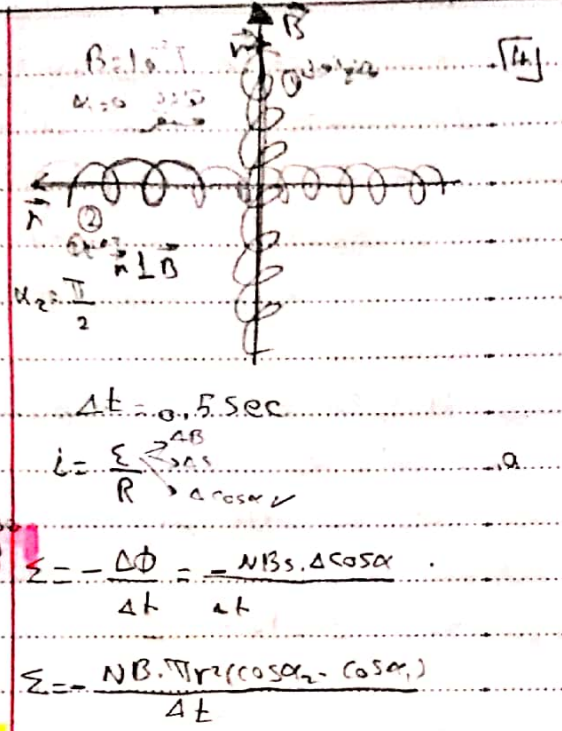 B
n
B=10 T
①
4
α₁=0
n
②
n ⊥ B
α₂ = π/2
Δt = 0,5 sec
ΔB
i = ε/R ΔS a.
Δcosα ✓
ε = - ΔΦ/Δt = - NBs.Δcosα/Δt
ε = - NB.πr²(cosα₂ - cosα₁)/Δt